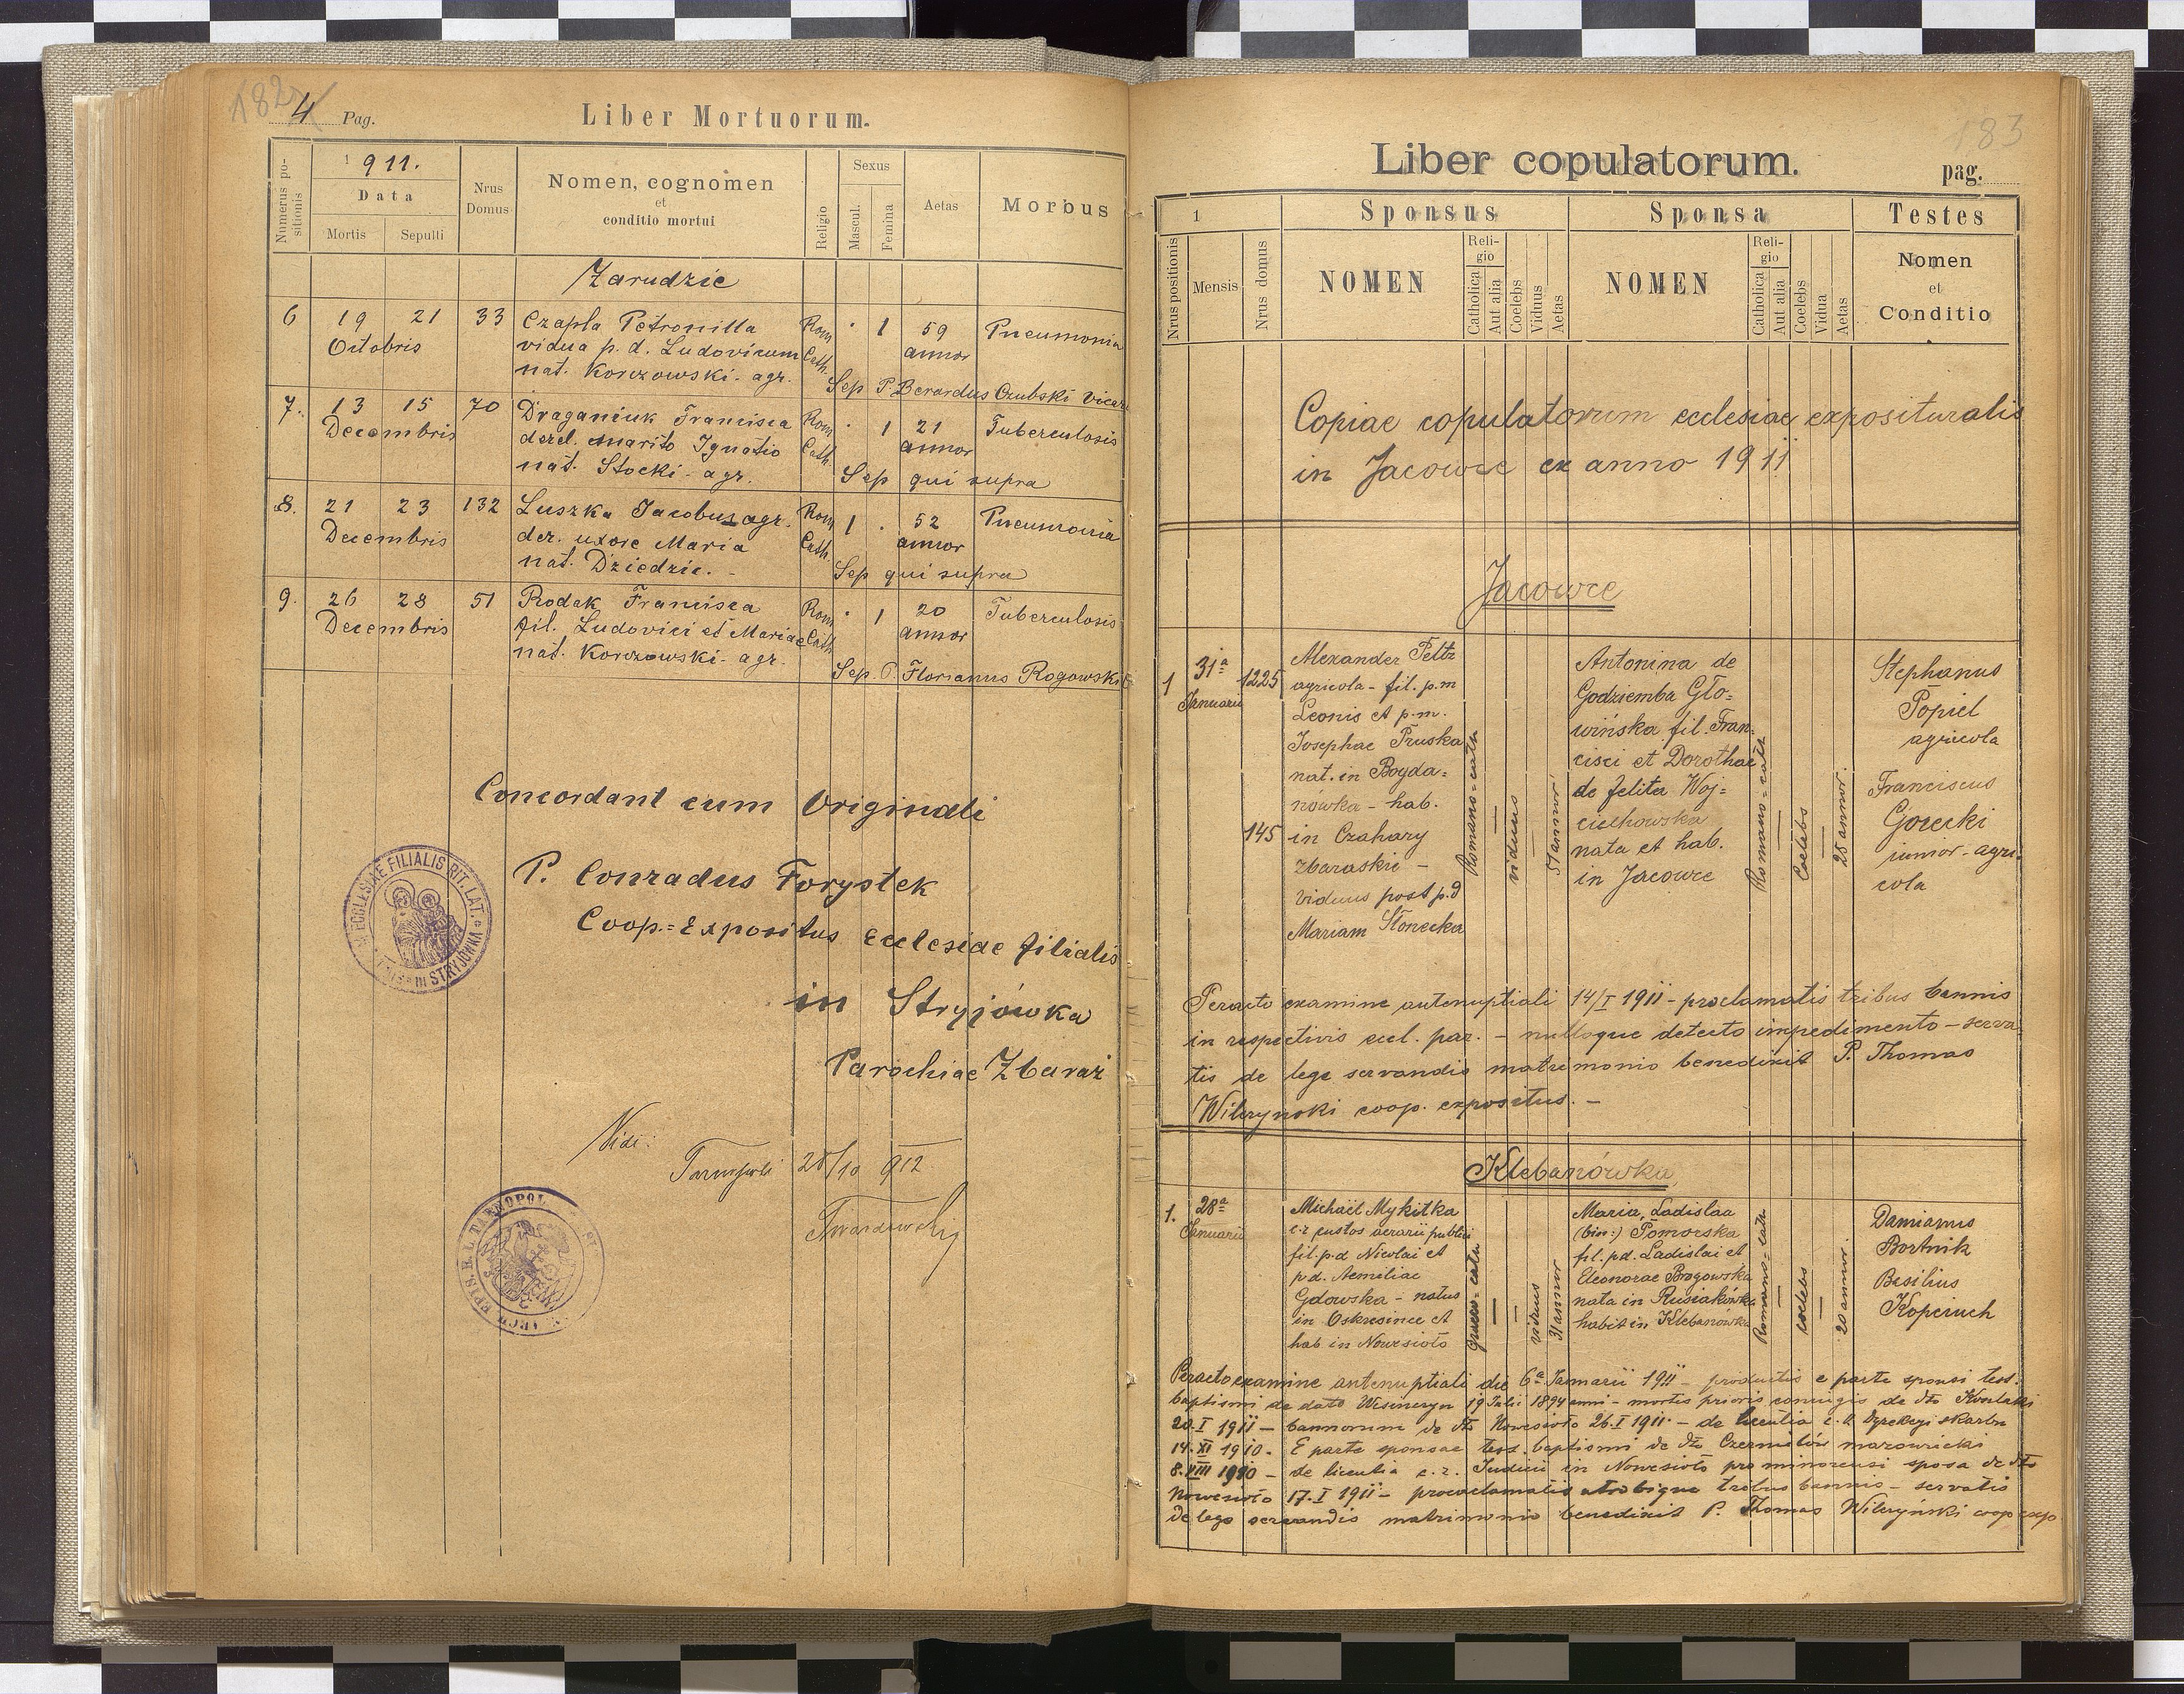 182
4 Pag.
Liber Mortuorum.
Numerus positionis
1911.
Data
Mortis
Sepulti
Nrus Domus
Nomen, cognomen
et
conditio mortui
Religio
Sexus
Mascul.
Femina
Aetas
Morbus
Zarudzie
6 19 21 33 Czapla Petronilla Rom . 1 59 Pneumonia
Octobris vidua p. d. Ludovicum Cath. annor
nat. Korczowski - agr.
Sep P. Berardus Czubski
7. 13 15 70 Draganiuk Francisca Rom . 1 21 Tuberculosis
Decembris derel. marito Ignatio Cath. annor
nat. Stocki - agr.
Sep qui supra
8. 21 23 132 Luszka Jacobus agr. Rom 1 . 52 Pneumonia
Decembris der. uxore Maria Cath. annor
nat. Dziedzic. -
Sep qui supra
9. 26 28 51 Rodak Francisca Rom . 1 20 Tuberculosis
Decembris fil. Ludovici et Mariae Cath. annor
nat. Korczowski - agr.
Sep. P. Florianus Rogowski
Concordant cum Originali
P. Conradus Forystek
Coop.=Expositus Ecclesiae filialis
in Stryjówka
Parochiae Zbaraż
ECCLESIAE FILIALIS RIT. LAT.
IN STRYJÓWKA
Vidi:
Tarnopoli 28/10 912
TARNOPOL
183
Liber copulatorum.
pag.
1
Sponsus
Sponsa
Testes
Nrus positionis
Mensis
Nrus domus
NOMEN
Religio
Catholica
Aut alia
Coelebs
Viduus
Aetas
NOMEN
Religio
Catholica
Aut alia
Coelebs
Vidua
Aetas
Nomen
et
Conditio
Copiae copulatorum ecclesiae exposituralis
in Jacowce ex anno 1911
Jacowce
1
31a
Januarii
1225
145
Alexander Peltz
agricola - fil. p.m
Leonis et p.m.
Josephae Pruska
nat. in Bogda=
nówka - hab.
in Czahary
zbaraskie -
viduus post p.d
Mariam Słonecka
Romano=cath
viduus
51 annor
Antonina de
Godziemba Gło=
wińska fil. Fran=
cisci et Dorothae
de Jelita Woj=
ciechowska
nata et hab.
in Jacowce
Romano=cath
Coelebs
28 annor.
Stephanus
Popiel
agricola
Franciscus
Gorecki
junior - agri=
cola
Peracto examine antenuptiali 14/I 1911 - proclamatis tribus bannis
in respectivis eccl. par. - nulloque detecto impedimento - serva=
tis de lege servandis matrimonio benedixit P. Thomas
Wilczyński coop. expositus. -
Klebanówka
1.
28a
Januarii
Michaël Mykitka
c.r custos aerarii publici
fil. p.d Nicolai et
p.d. Aemiliae
Gdowska - natus
in Oskresince et
hab in Nowesioło
Graeco=cath
viduus
31 annor
Maria, Ladislaa
(bin:) Pomorska
fil. pd. Ladislai et
Eleonorae Brogowska
nata in Rusiakówka
habit in Klebanówka
Romano=cath
coelebs
20 annor.
Damianus
Bortnik
Basilius
Koperuch
Peracto examine antenuptiali die 6a Januarii 1911 - productis e parte sponsi test.
baptismi de dato 19 Julii 1894 anni - mortis prioris conjugis de dto
20.I 1911 - bannorum de dto Nowesioło 26.I 1911 - de licentia c.k. Dyrekcyi skarbu
14.XI 1910. E parte sponsae test. baptismi de dto mazowiecki
8.XIII 1910 - de licentia c.r. Judicii in Nowesioło pro minorensi sposa de dto
Nowesioło 17.I 1911 - proclamatis utrobique tribus bannis - servatis
de lege servandis matrimonio benedixit P. Thomas Wilczyński coop exp